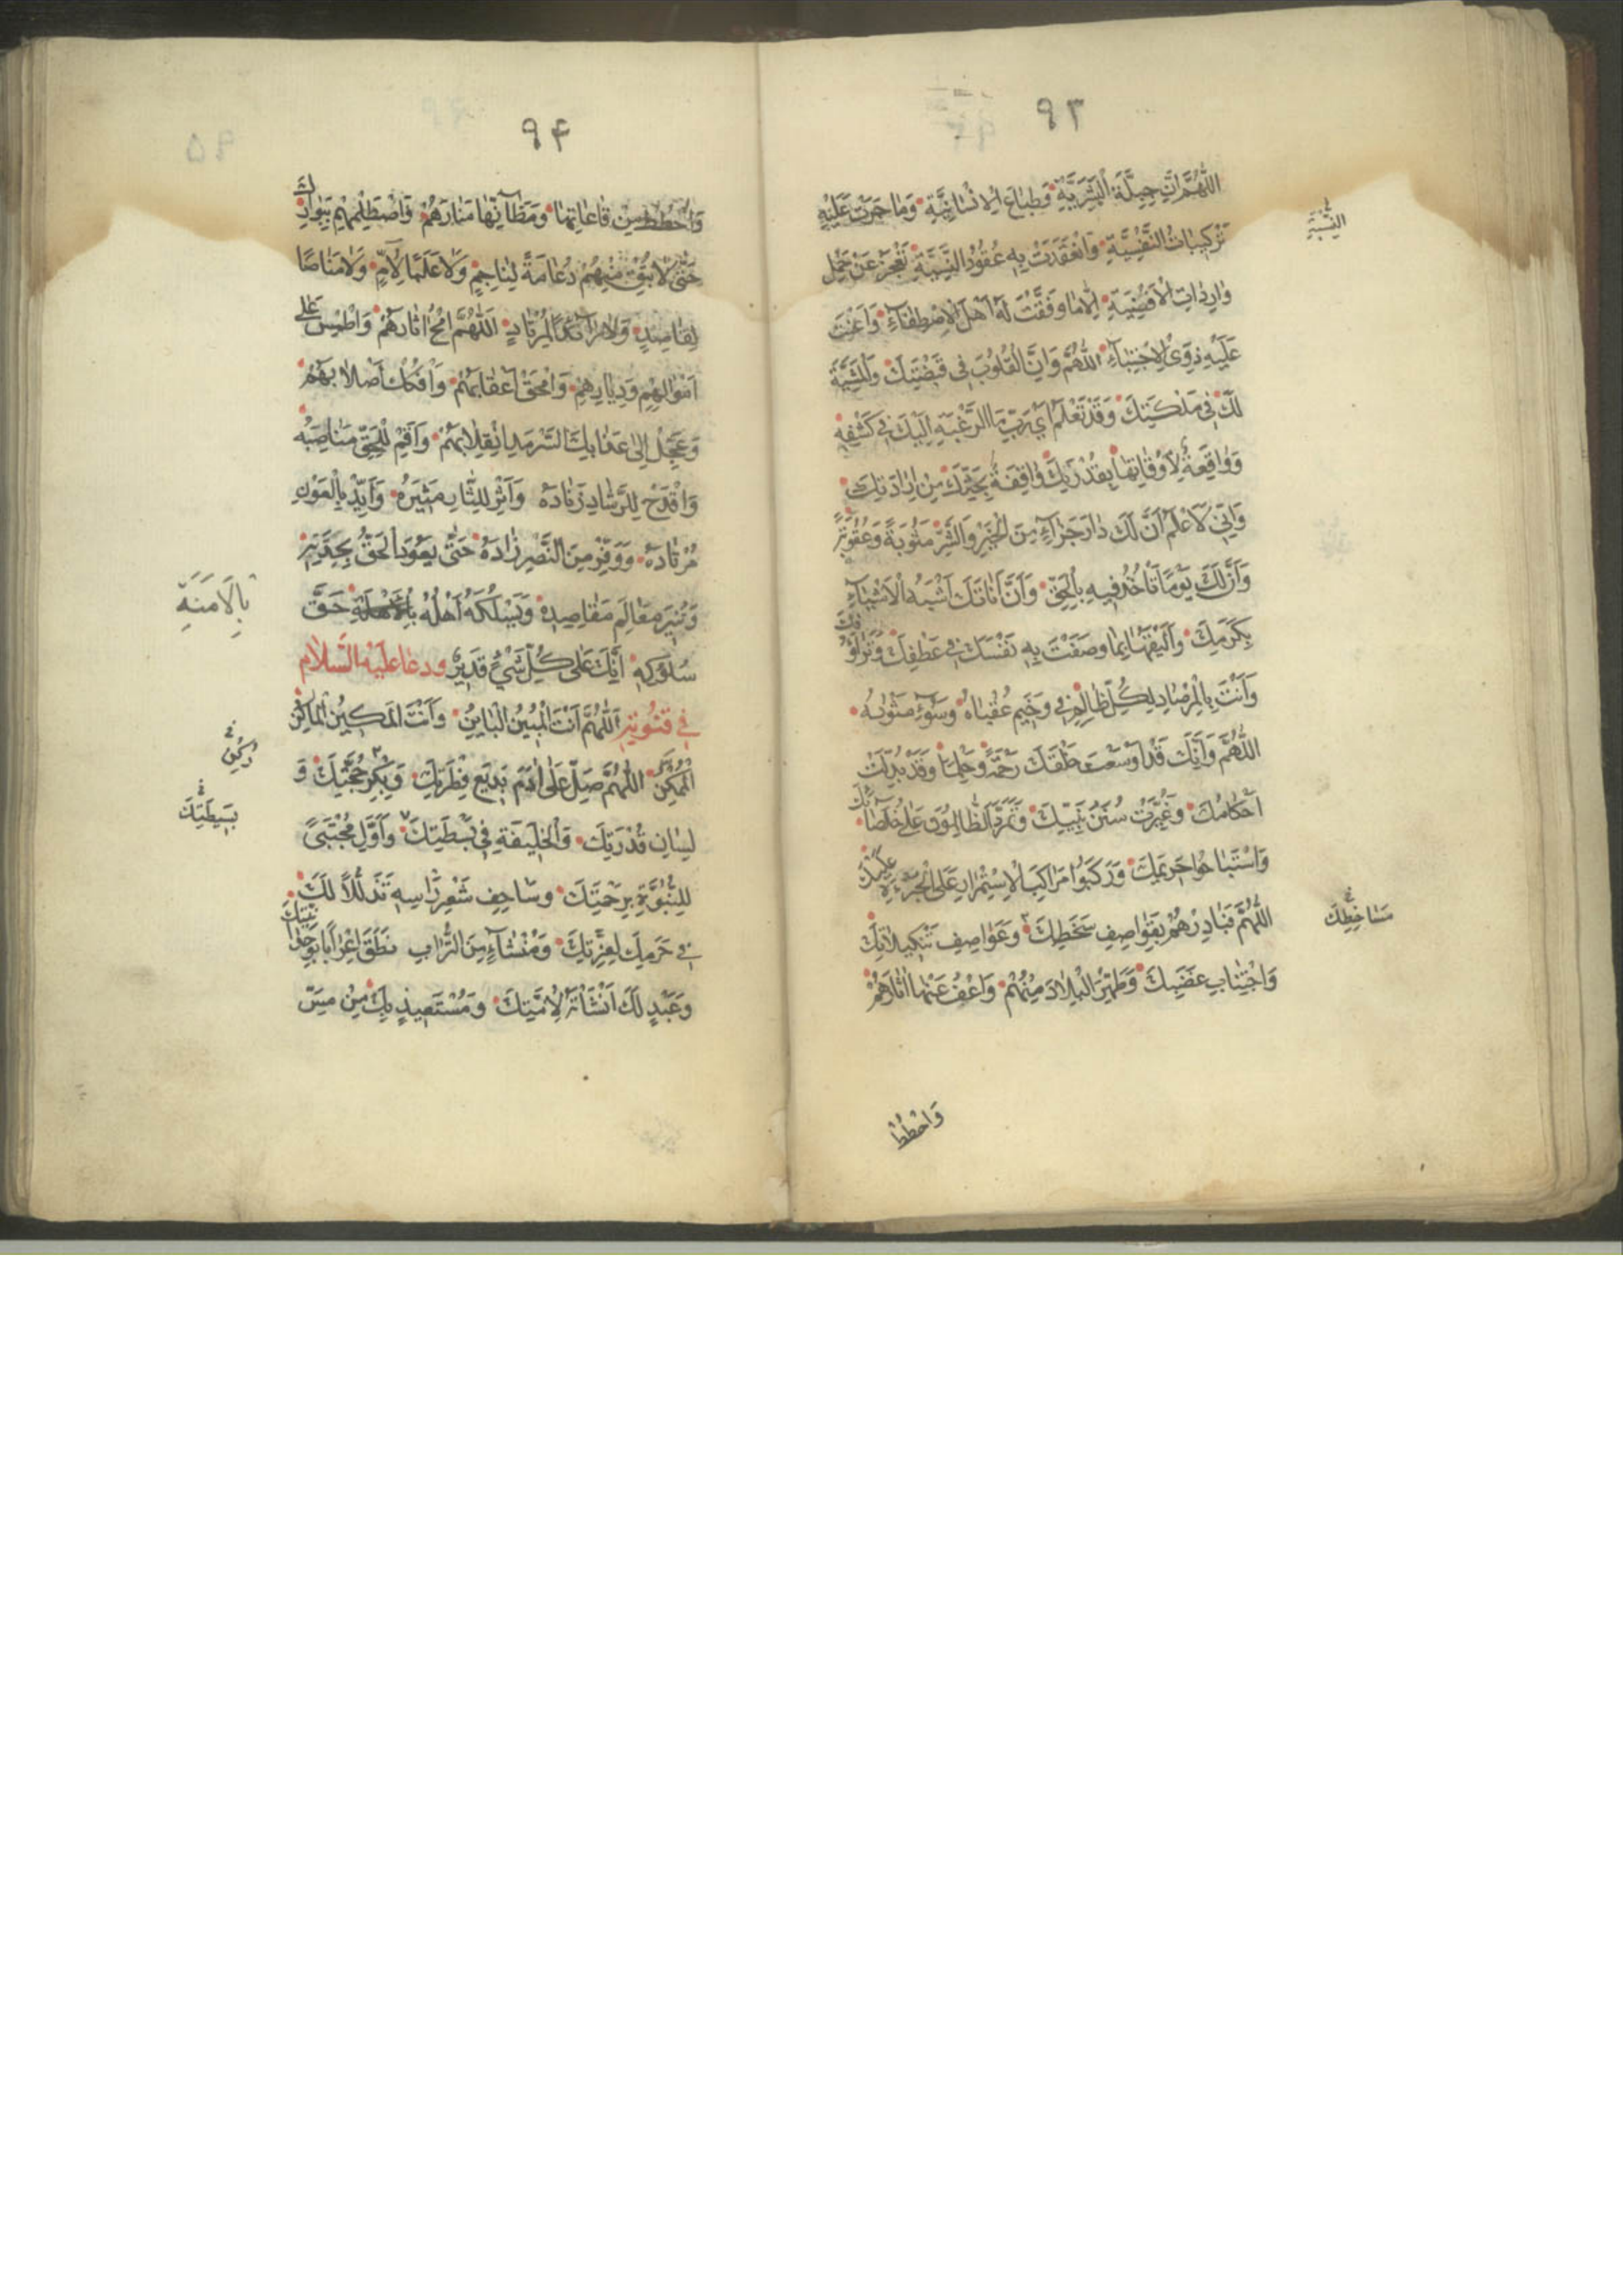 ۹۳
اللّٰهُمَّ اِنَّ جِبِلَّةَ الْبَشَرِيَّةِ وَطِبَاعَ الْاِنْسَانِيَّةِ وَمَا جَرَتْ عَلَيْهِ
النسبیة
تَرْكِيبَاتُ النَّفْسِيَّةِ وَانْعَقَدَتْ بِهِ عُقُودُ النَّسَمِيَّةِ تَعْجِزُ عَنْ حَمْلِ
وَارِدَاتِ الْاَقْضِيَةِ اِلَّا مَا وَفَّقْتَ لَهُ اَهْلَ الْاِصْطِفَاءِ وَاَعَنْتَ
عَلَيْهِ ذَوِى الْاِجْتِبَاءِ اللّٰهُمَّ وَاِنَّ الْقُلُوبَ فِى قَبْضَتِكَ وَالْمَشِيَّةَ
لَكَ فِى مَلْكَتِكَ وَقَدْ تَعْلَمُ اَىْ رَبِّ مَا الرَّغْبَةُ اِلَيْكَ فِى كَشْفِهِ
وَوَاقِعَةٌ لِاَوْقَاتِهَا بِقُدْرَتِكَ وَاقِفَةٌ بِحَدِّكَ مِنْ اِرَادَتِكَ
وَاِنِّى لَاَعْلَمُ اَنَّ لَكَ دَارَ جَزَاءٍ مِنَ الْخَيْرِ وَالشَّرِّ مَثُوبَةً وَعُقُوبَةً
وَاَنَّ لَكَ يَوْمًا تَاْخُذُ فِيهِ بِالْحَقِّ وَاَنَّ اَنَاتَكَ اَشْبَهُ الْاَشْيَاءِ
بِكَرَمِكَ وَاَلْيَقُهَا بِمَا وَصَفْتَ بِهِ نَفْسَكَ فِى عَطْفِكَ وَتَرَاَؤُفِكَ
وَاَنْتَ بِالْمِرْصَادِ لِكُلِّ ظَالِمٍ فِى وَخِيمِ عُقْبَاهُ وَسُوءِ مَثْوَاهُ
اللّٰهُمَّ وَاِنَّكَ قَدْ اَوْسَعْتَ خَلْقَكَ رَحْمَةً وَحِلْمًا وَقَدْ بُدِّلَتْ
اَحْكَامُكَ وَغُيِّرَتْ سُنَنُ نَبِيِّكَ وَتَمَرَّدَ الظَّالِمُونَ عَلَى خُلَصَائِكَ
وَاسْتَبَاحُوا حَرِيمَكَ وَرَكِبُوا مَرَاكِبَ الْاِسْتِمْرَارِ عَلَى الْجُرْءَةِ عَلَيْكَ
اللّٰهُمَّ فَبَادِرْهُمْ بِقَوَاصِفِ سَخَطِكَ وَعَوَاصِفِ تَنْكِيلَاتِكَ
مَسَاخِطِكَ
وَاجْتِثَابِ غَضَبِكَ وَطَهِّرِ الْبِلَادَ مِنْهُمْ وَاعْفُ عَنْهَا اٰثَارَهُمْ
وَاحْطُطْ
۹۴
وَاحْطُطْ مِنْ قَاعَاتِهَا وَمَظَانِّهَا مَنَارَهُمْ وَاصْطَلِمْهُمْ بِبَوَارِكَ
حَتَّى لَا تُبْقِ مِنْهُمْ دِعَامَةً لِنَاجِمٍ وَلَا عَلَمًا لِاٰمٍّ وَلَا مَنَاصًا
لِقَاصِدٍ وَلَا رَائِدًا لِمُرْتَادٍ اَللّٰهُمَّ امْحُ اٰثَارَهُمْ وَاطْمِسْ عَلَى
اَمْوَالِهِمْ وَدِيَارِهِمْ وَامْحَقْ اَعْقَابَهُمْ وَافْكُكْ اَصْلَابَهُمْ
وَعَجِّلْ اِلَى عَذَابِكَ السَّرْمَدِ انْقِلَابَهُمْ وَاَقِمْ لِلْحَقِّ مَنَاصِبَهُ
وَاقْدَحْ لِلرَّشَادِ زِنَادَهُ وَاَثِرْ لِلثَّارِ مُثِيرَهُ وَاَيِّدْ بِالْعَوْنِ
مُرْتَادَهُ وَوَفِّرْ مِنَ النَّصْرِ زَادَهُ حَتَّى يَعُودَ الْحَقُّ بِجِدَّتِهِ
وَتُنِيرَ مَعَالِمَ مَقَاصِدِهِ وَيَسْلُكَهُ اَهْلُهُ حَقَّ
بِالْاَمَنَةِ
سُلُوكِهِ اِنَّكَ عَلَى كُلِّ شَىْءٍ قَدِيرٌ ودعا عليه السلام
فى قنوته اَللّٰهُمَّ اَنْتَ الْمُبِينُ الْبَائِنُ وَاَنْتَ الْمَكِينُ الْمَاكِنُ
الْمُمَكِّنُ اللّٰهُمَّ صَلِّ عَلَى اٰدَمَ بَدِيعِ فِطْرَتِكَ وَبِكْرِ حُجَّتِكَ وَ
لِسَانِ قُدْرَتِكَ وَالْخَلِيفَةِ فِى بَسْطَتِكَ وَاَوَّلِ مُجْتَبًى
بَسِيطَتِكَ
لِلنُّبُوَّةِ بِرَحْمَتِكَ وَسَاحِفِ شَعْرِ رَاْسِهِ تَذَلُّلًا لَكَ
فِى حَرَمِكَ لِعِزَّتِكَ وَمُنْشَاءٍ مِنَ التُّرَابِ نَطَقَ اِعْرَابًا بِوَحْدَانِيَّتِكَ
وَعَبْدٍ لَكَ اَنْشَاْتَهُ لِاُمَّتِكَ وَمُسْتَعِيذٍ بِكَ مِنْ مَسِّ